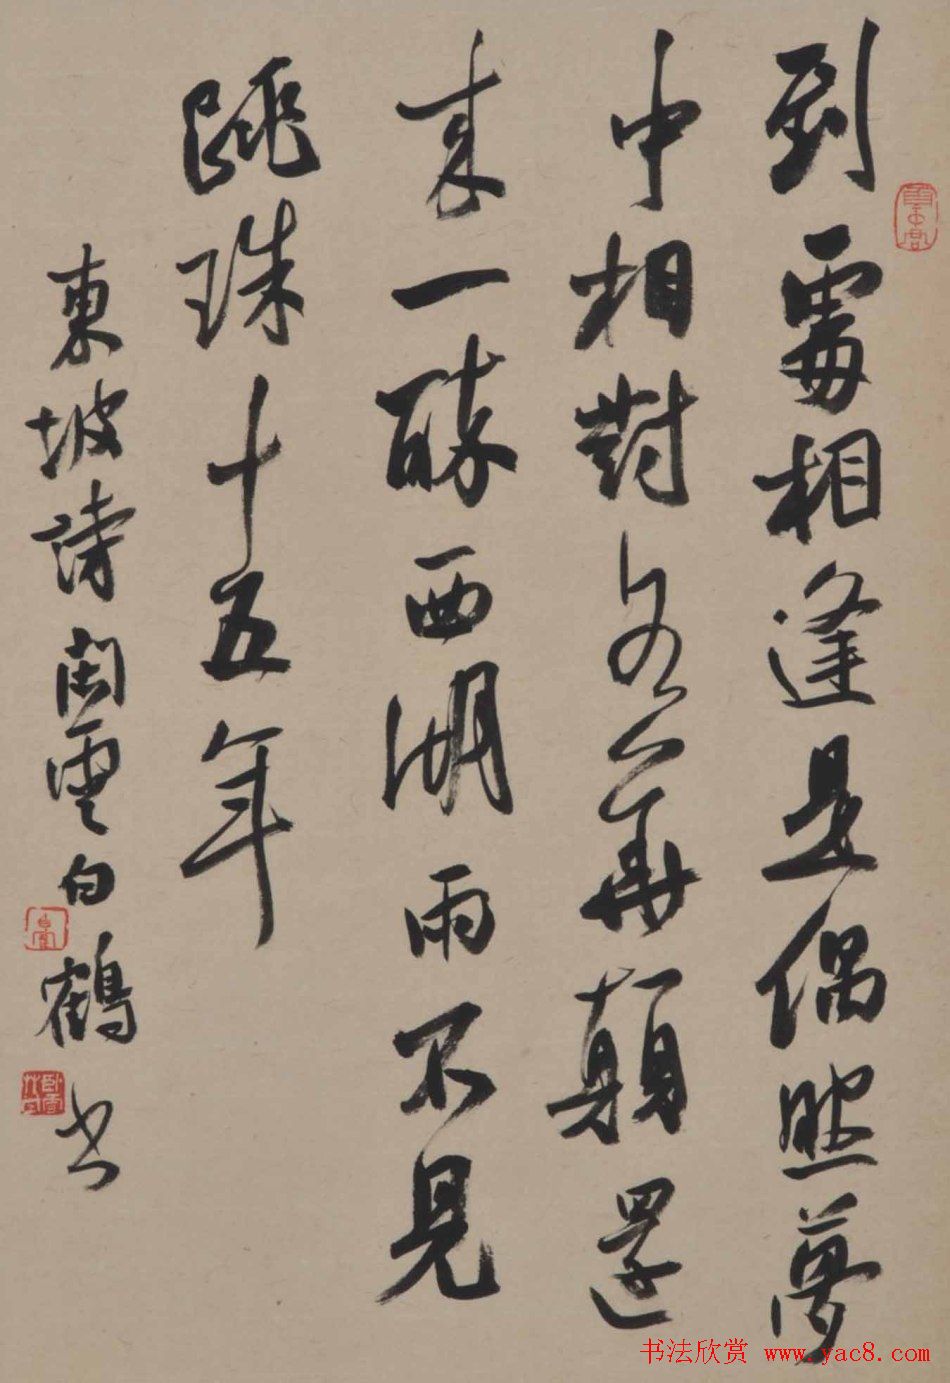 到處相逢是偶然夢
中相對各華顛還
来一醉西湖雨不見
跳珠十五年
東坡詩 閑雲白鶴书
书法欣赏 www.yac8.com